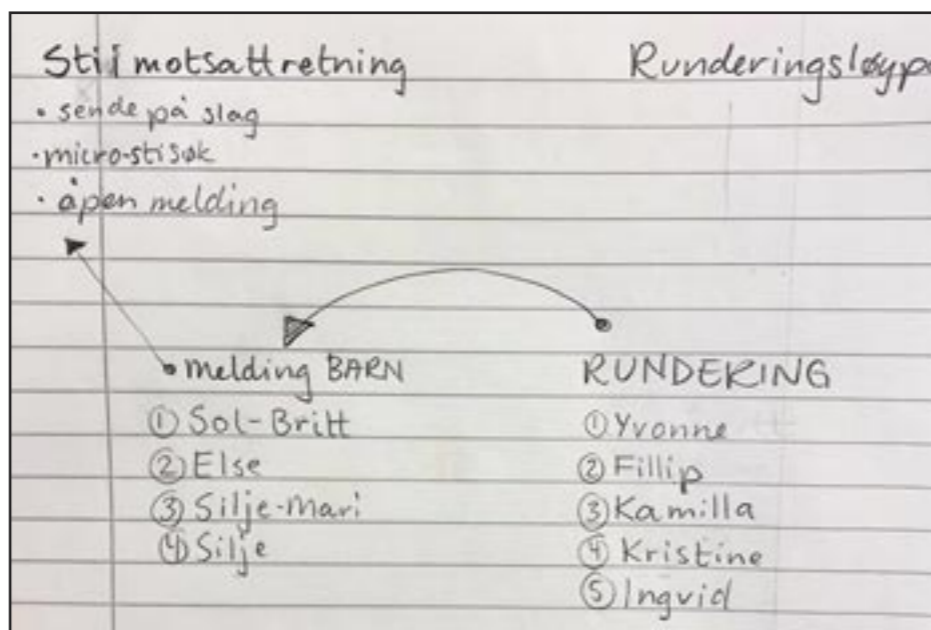 Stil motsatt retning
Runderingsløype
• sende på slag
• micro-stisøk
• åpen melding
• melding BARN
① Sol-Britt
② Else
③ Silje-Mari
④ Silje
RUNDERING
① Yvonne
② Fillip
③ Kamilla
④ Kristine
⑤ Ingvid